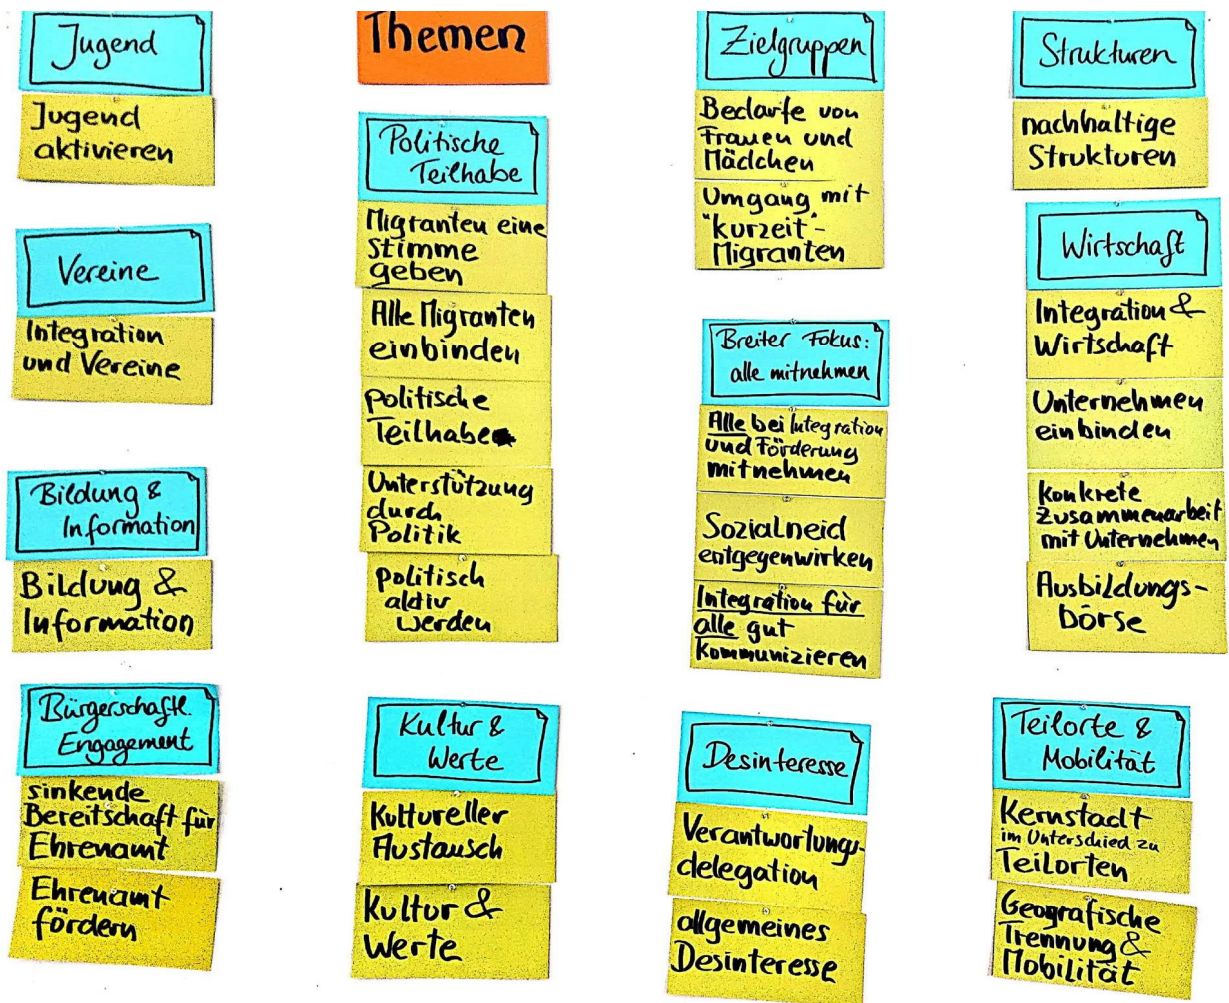 Jugend
Jugend
aktivieren
Vereine
Integration
und Vereine
Bildung &
Information
Bildung &
Information
Bürgerschaftl.
Engagement
sinkende
Bereitschaft für
Ehrenamt
Ehrenamt
fördern
Themen
Politische
Teilhabe
Migranten eine
Stimme
geben
Alle Migranten
einbinden
Politische
Teilhabe
Unterstützung
durch
Politik
politisch
aktiv
werden
Kultur &
Werte
Kultureller
Austausch
Kultur &
Werte
Zielgruppen
Bedarfe von
Frauen und
Mädchen
Umgang mit
"kurzeit"-
Migranten
Breiter Fokus:
alle mitnehmen
Alle bei Integration
und Förderung
mitnehmen
Sozialneid
entgegenwirken
Integration für
alle gut
kommunizieren
Desinteresse
Verantwortungs-
delegation
allgemeines
Desinteresse
Strukturen
nachhaltige
Strukturen
Wirtschaft
Integration &
Wirtschaft
Unternehmen
einbinden
konkrete
Zusammenarbeit
mit Unternehmen
Ausbildungs-
börse
Teilorte &
Mobilität
Kernstadt
im Unterschied zu
Teilorten
Geografische
Trennung &
Mobilität